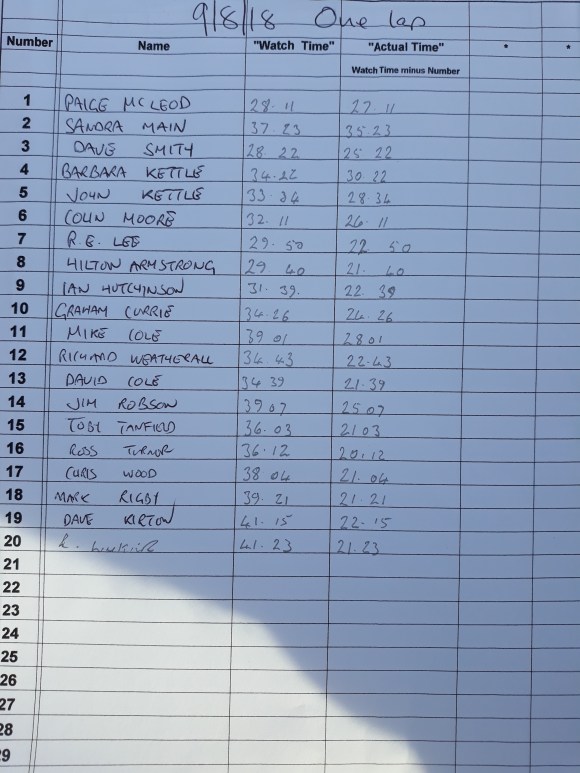 9/8/18 One lap
Number Name "Watch Time" "Actual Time" * *
Watch Time minus Number
1 PAIGE MCLEOD 28.11 27.11
2 SANDRA MAIN 37.23 35.23
3 DAVE SMITH 28 22 25 22
4 BARBARA KETTLE 34.22 30.22
5 JOHN KETTLE 33.34 28.34
6 COLIN MOORE 32.11 26.11
7 R.E. LEE 29.50 22 50
8 HILTON ARMSTRONG 29 40 21. 40
9 IAN HUTCHINSON 31.39. 22 39
10 GRAHAM CURRIE 34.26 24.26
11 MIKE COLE 39 01 28 01
12 RICHARD WEATHERALL 34.43 22.43
13 DAVID COLE 34 39 21.39
14 JIM ROBSON 39 07 25 07
15 TOBY TANFIELD 36.03 21 03
16 ROSS TURNOR 36.12 20.12
17 CHRIS WOOD 38 04 21.04
18 MARK RIGBY 39.21 21.21
19 DAVE KIRTON 41.15 22.15
20 41.23 21.23
21
22
23
24
25
26
27
28
29